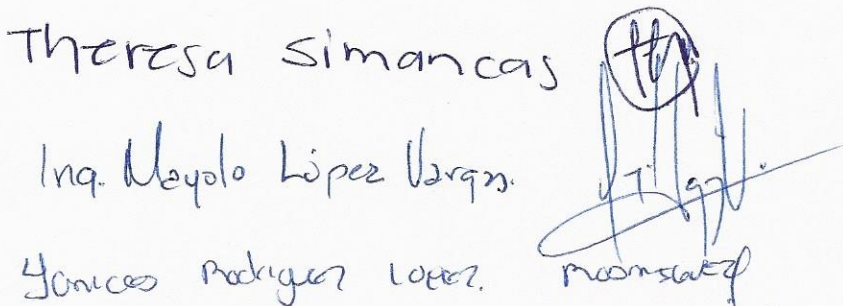 Theresa Simancas
Ing. Mayolo López Vargas.
Rodriguez Lopez.